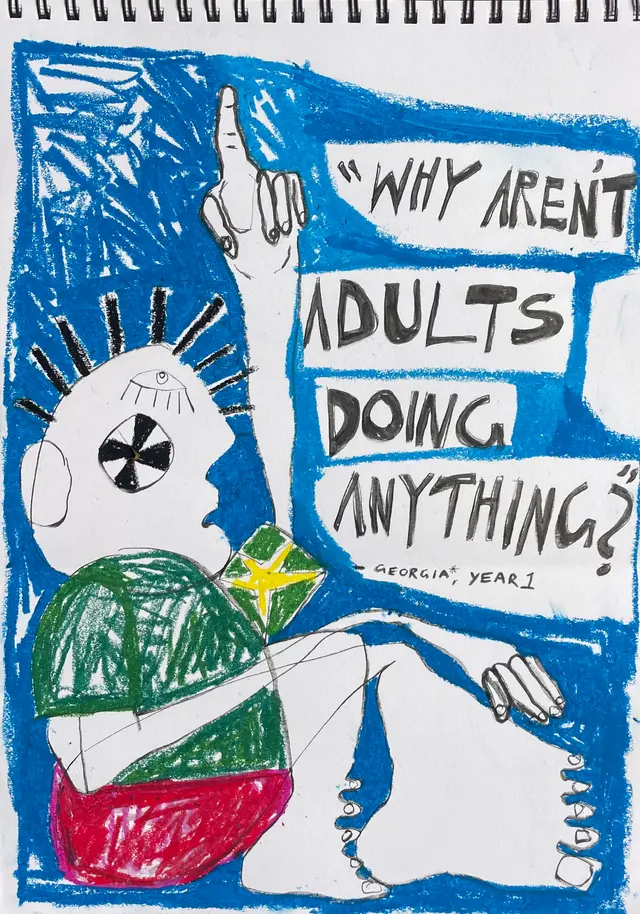 "WHY AREN'T
ADULTS
DOING
ANYTHING?"
- GEORGIA*, YEAR 1